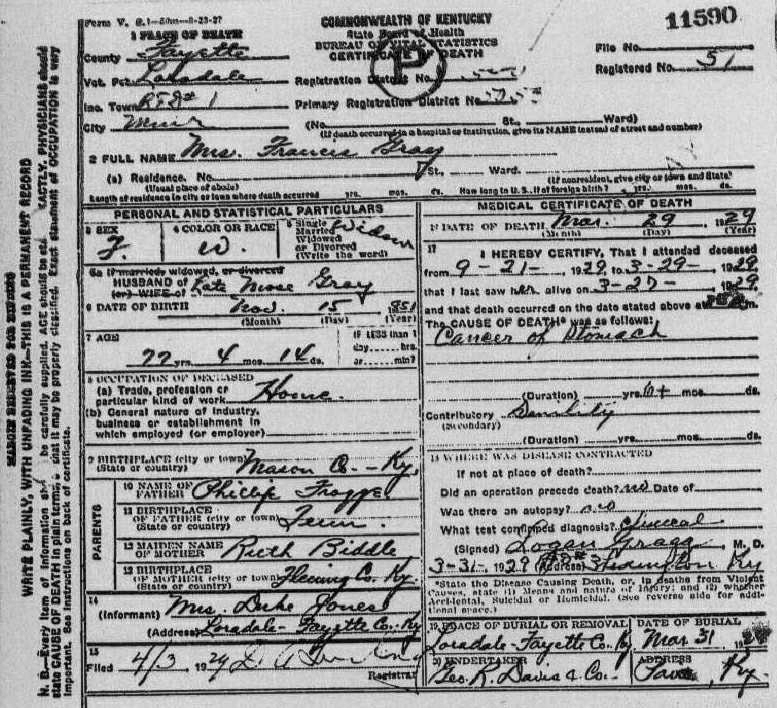 Form V.
COMMONWEALTH OF KENTUCKY
State Board of Health
BUREAU OF VITAL STATISTICS
CERTIFICATE OF DEATH
11590
1 PLACE OF DEATH
County Fayette
Vot. Pct Loradale
Inc. Town RFD# 1
City Muir
Registration District No.
Primary Registration District No.
File No.
Registered No. 51
(No. St., Ward)
(If death occurred in a hospital or institution, give its NAME instead of street and number)
2 FULL NAME Mrs. Francis Gray
(a) Residence. No. St., Ward.
(Usual place of abode) (If nonresident, give city or town and State)
Length of residence in city or town where death occurred yrs. mos. ds. How long in U. S., if of foreign birth? yrs. mos. ds.
PERSONAL AND STATISTICAL PARTICULARS
3 SEX F.
4 COLOR OR RACE W.
5 Single Married Widowed or Divorced (Write the word) Widow
5a If married, widowed, or divorced
HUSBAND of
(or) WIFE of Gray
6 DATE OF BIRTH Nov. 15 851
(Month) (Day) (Year)
7 AGE
IF LESS than 1
day, hrs.
or min?
yrs. 4 mos. 14 ds.
8 OCCUPATION OF DECEASED
(a) Trade, profession or
particular kind of work Home.
(b) General nature of industry,
business or establishment in
which employed (or employer)
9 BIRTHPLACE (city or town) Mason Co.-Ky.
(State or country)
PARENTS
10 NAME OF
FATHER Phillip
11 BIRTHPLACE
OF FATHER (city or town) Tenn.
(State or country)
12 MAIDEN NAME
OF MOTHER Ruth Biddle
13 BIRTHPLACE
OF MOTHER (city or town) Fleming Co. Ky.
(State or country)
14
(Informant) Mrs. Duke Jones
(Address) Loradale-Fayette Co. Ky
15
Filed 4/3 1929
Registrar
MEDICAL CERTIFICATE OF DEATH
16 DATE OF DEATH Mar. 29 1929
(Month) (Day) (Year)
17
I HEREBY CERTIFY, That I attended deceased
from 9-21- 1929, to 3-29- 1929
that I last saw her alive on 3-27- 1929
and that death occurred on the date stated above at m.
The CAUSE OF DEATH* was as follows:
Cancer of Stomach
(Duration) yrs. 6+ mos. ds.
Contributory Senility
(Secondary)
(Duration) yrs. mos. ds.
18 WHERE WAS DISEASE CONTRACTED
If not at place of death?
Did an operation precede death? no Date of
Was there an autopsy? no
What test confirmed diagnosis? Clinical
(Signed) Logan Gragg, M. D.
3-31-, 1929 (Address) Lexington Ky
*State the Disease Causing Death, or, in deaths from Violent
Causes, state (1) Means and nature of Injury; and (2) whether
Accidental, Suicidal or Homicidal. (See reverse side for addi-
tional space.)
19 PLACE OF BURIAL OR REMOVAL
Loradale-Fayette Co. Ky
DATE OF BURIAL
Mar 31 19
20 UNDERTAKER
Geo. R. Davis & Co.
ADDRESS
Ky.
MARGIN RESERVED FOR BINDING
WRITE PLAINLY, WITH UNFADING INK—THIS IS A PERMANENT RECORD
N. B.—Every item of information should be carefully supplied. AGE should be EXACTLY. PHYSICIANS should
state CAUSE OF DEATH in plain terms, that it may be properly classified. Exact statement of OCCUPATION is very
important. See instructions on back of certificate.